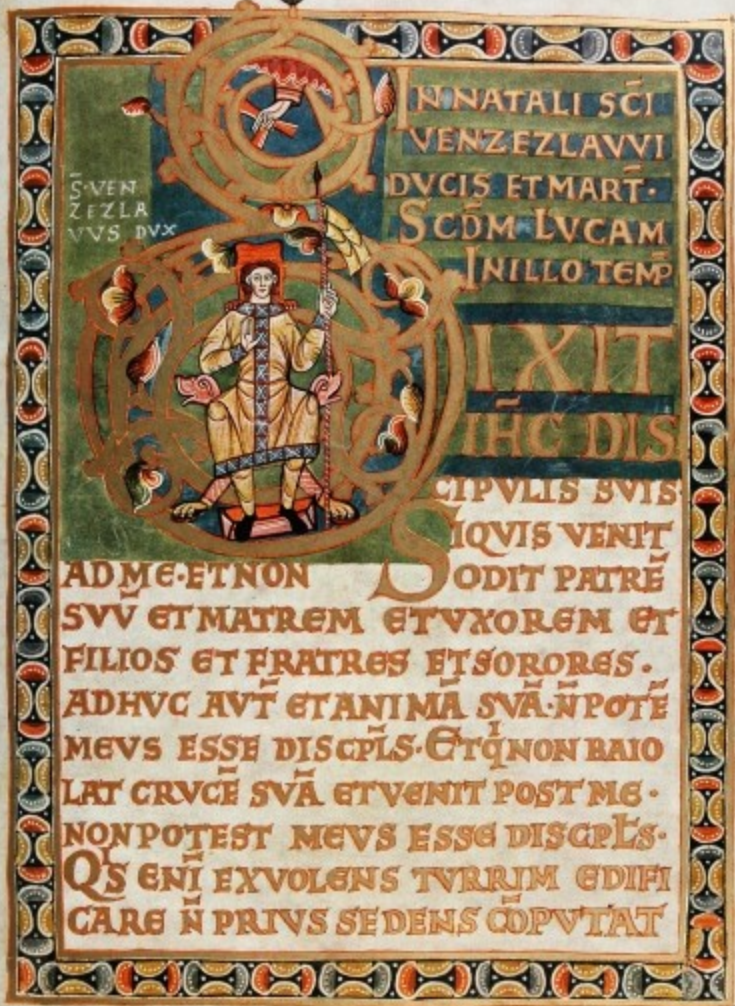 S̄·VEN
ZEZLA
VVS DVX
IN NATALI SC̄I
VENZEZLAVVI
DVCIS ET MART̄·
SCD̄M LVCAM
IN ILLO TEMP̄
DIXIT
IH̄C DIS
CIPVLIS SVIS·
SIQVIS VENIT
AD ME·ET NON ODIT PATRĒ
SVV̄ ET MATREM ET VXOREM ET
FILIOS ET FRATRES ET SORORES·
ADHVC AVT̄ ET ANIMĀ SVĀ·N̄ POTĒ
MEVS ESSE DISCPL̄S·ET Qͥ NON BAIO
LAT CRVCĒ SVĀ ET VENIT POST ME·
NON POTEST MEVS ESSE DISCPL̄S·
QͥS ENĪ EX VOLENS TVRRIM EDIFI
CARE N̄ PRIVS SEDENS CŌPVTAT